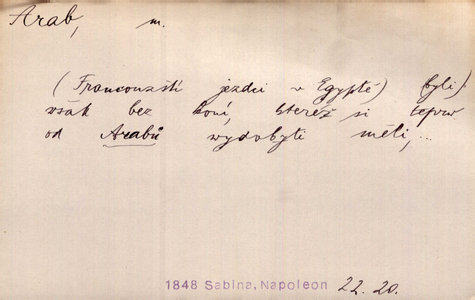 Arab, m.
(Francouzští jezdci v Egyptě) (byli)
však bez koní, kteréž si teprv
od Arabů vydobyti měli,...
1848 Sabina, Napoleon 22. 20.